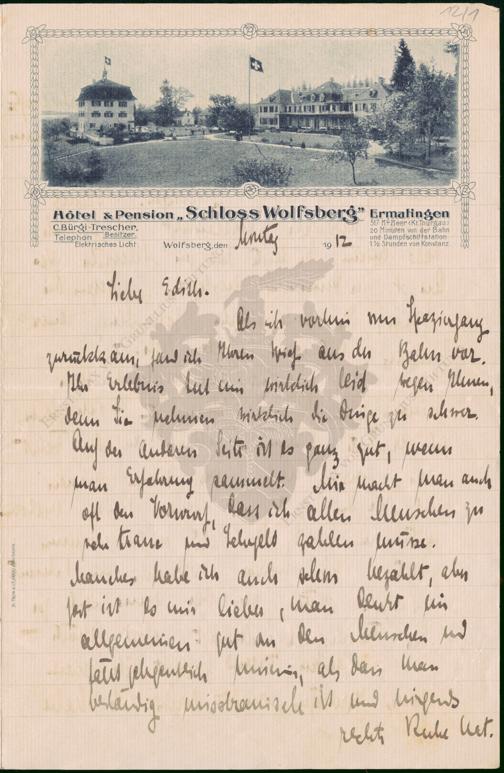 12/1
Hôtel & Pension „Schloss Wolfsberg" Ermatingen
C. Bürgi-Trescher, Besitzer.
Telephon
Elektrisches Licht
517 M. ü. Meer (Kt. Thurgau)
20 Minuten von der Bahn
und Dampfschiffstation
1½ Stunden von Konstanz.
Wolfsberg, den Montag 1912
Liebe Edith.
Als ich vorhin vom Spaziergang
zurückkam, fand ich Ihren Brief aus der Bahn vor.
Ihr Erlebnis tut mir wirklich leid wegen Ihnen,
denn Sie nehmen wirklich die Dinge zu schwer.
Auf der anderen Seite ist es ganz gut, wenn
man Erfahrung sammelt. Mir macht man auch
oft den Vorwurf, dass ich allen Menschen zu
sehr traue und Lehrgeld zahlen müsse.
Manches habe ich auch schon bezahlt, aber
fast ist es mir lieber, man denkt im
allgemeinen gut von den Menschen und
fällt gelegentlich hinein, als dass man
beständig misstrauisch ist und nirgends
rechte Ruhe hat.